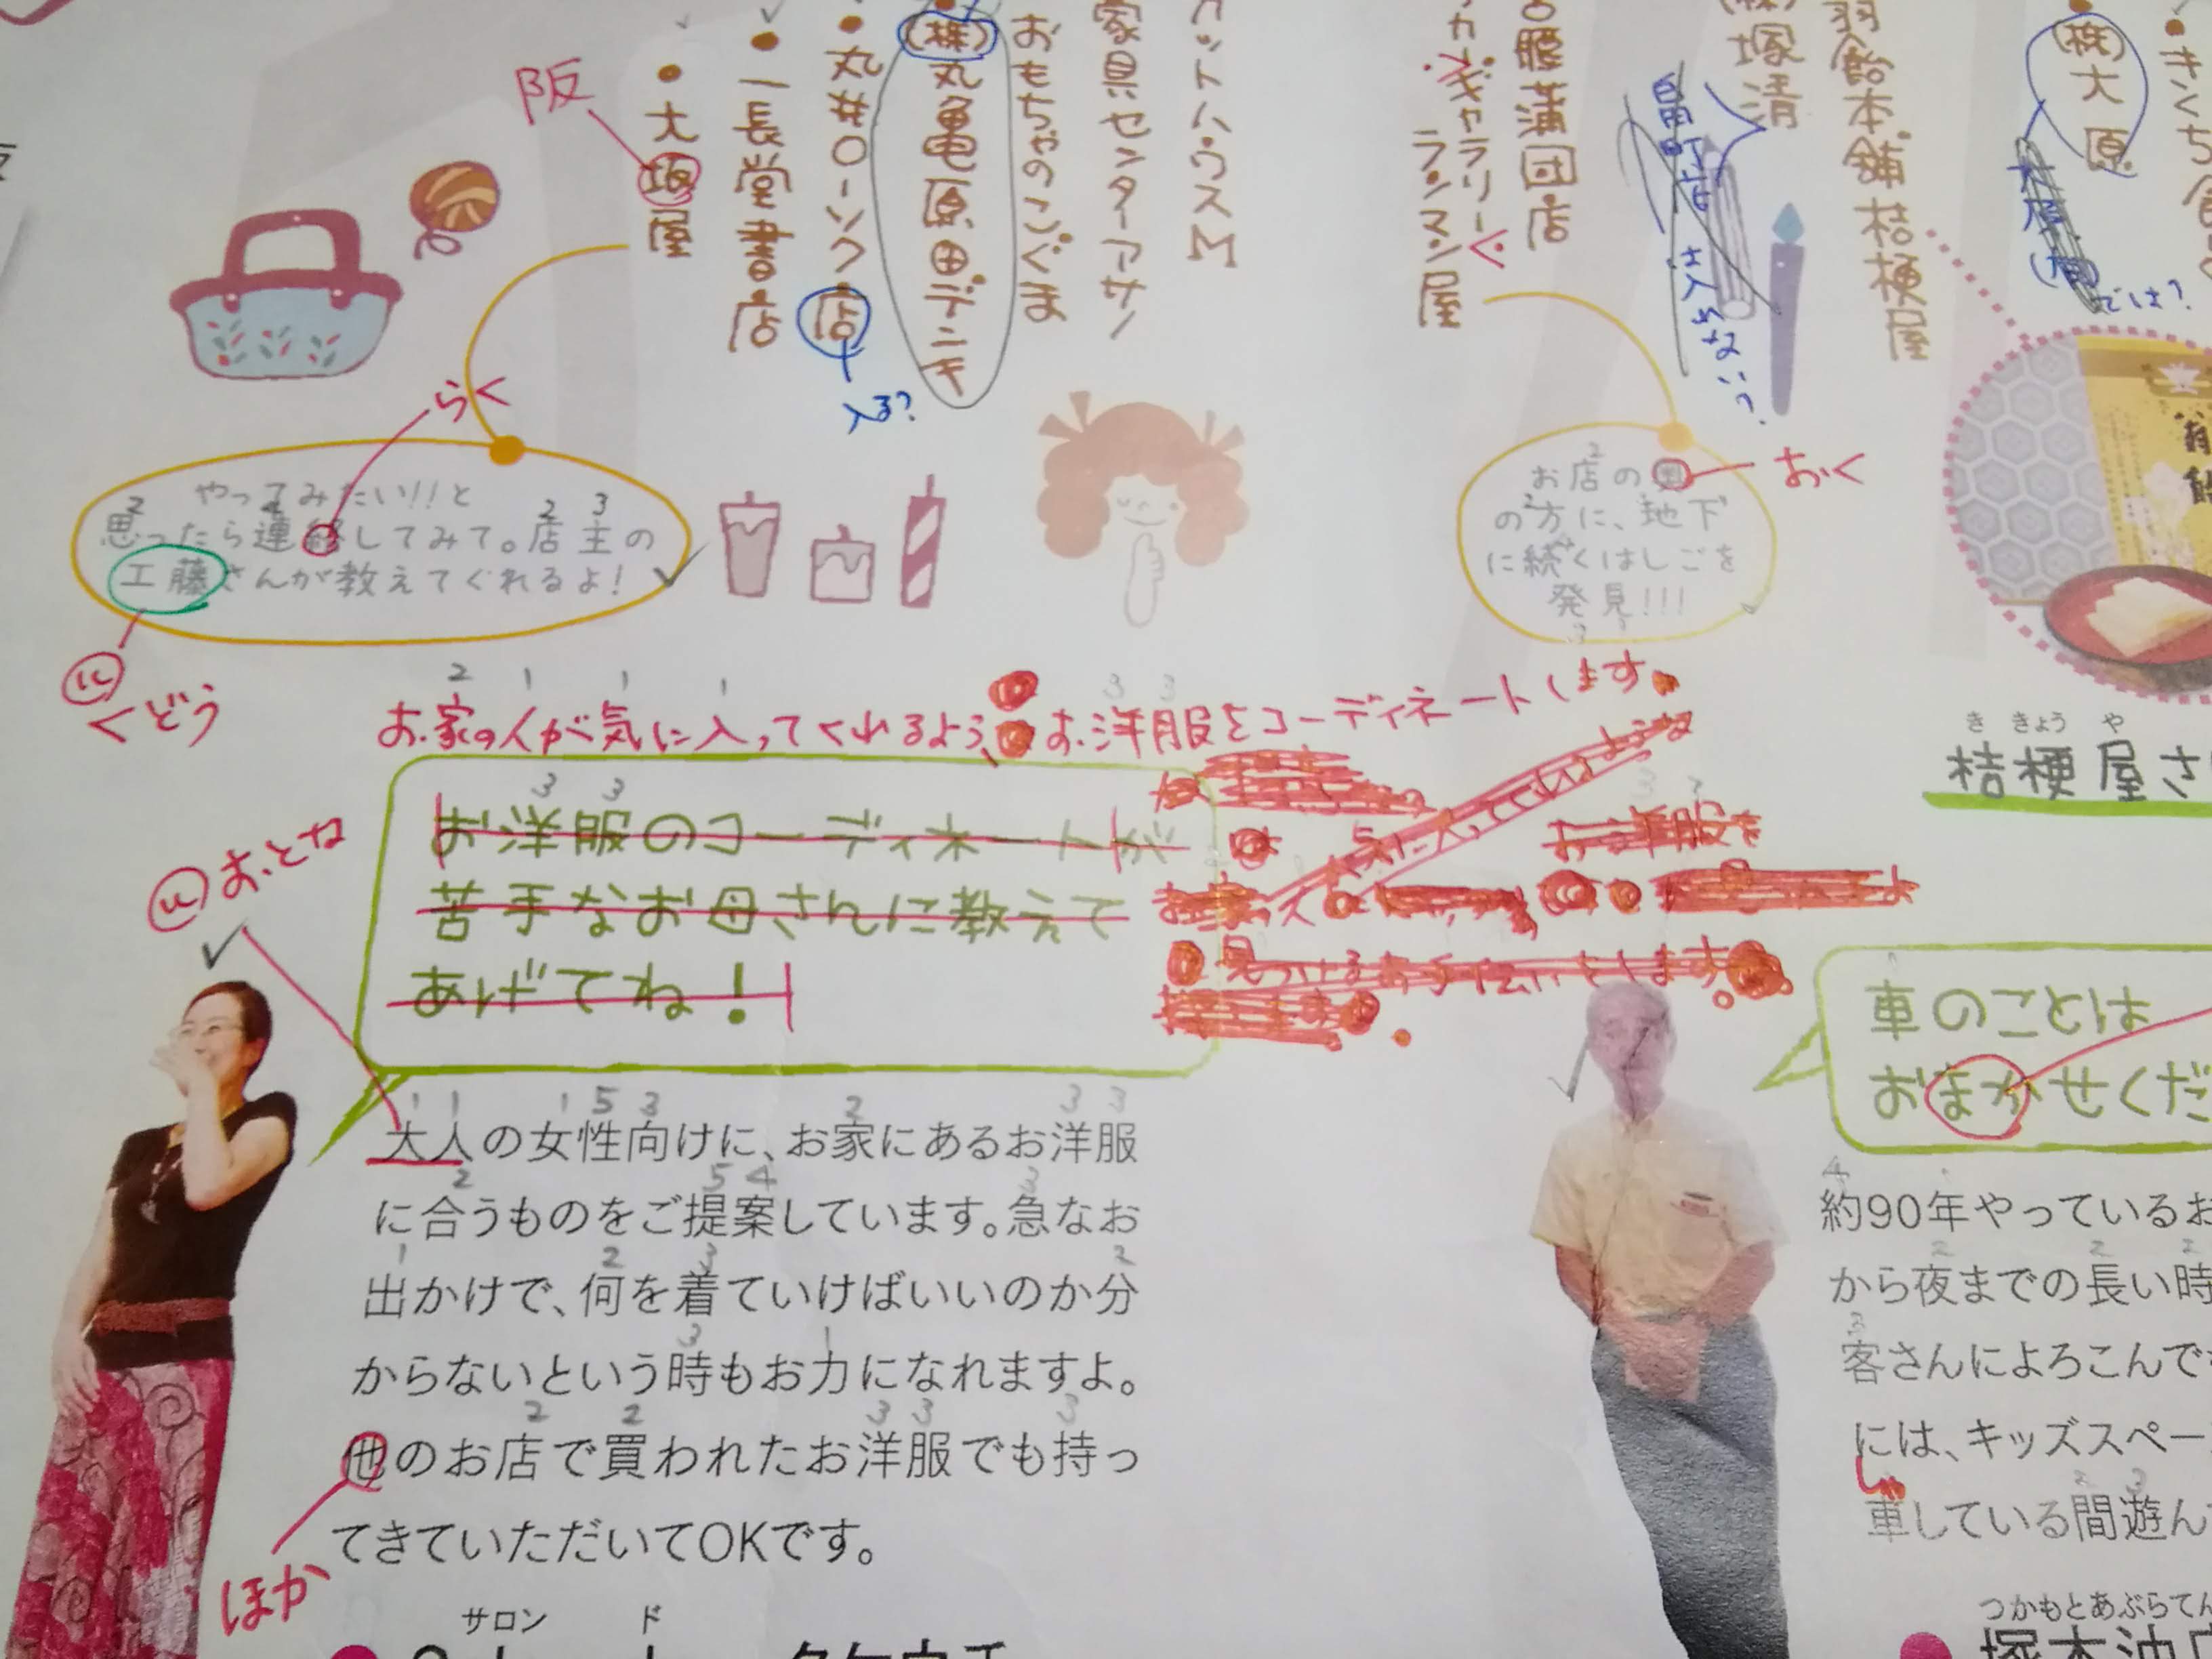 きくち食
(株)大原
では?
羽飴本舗桔梗屋
(株)塚清
畠町店は入らない?
腰蒲団店
ギャラリー
ランマン屋
カットハウスM
家具センターアサノ
おもちゃのこぐま
(株)丸亀原田デンキ
丸井ローソク店
入る?
一長堂書店
大坂屋
阪
らく
やってみたい!!と
思ったら連絡してみて。店主の
工藤さんが教えてくれるよ!
くどう
お店の奥
の方に、地下
に続くはしごを
発見!!!
おく
き きょう や
桔梗屋さ
お家の人が気に入ってくれるよう、お洋服をコーディネートします。
お洋服のコーディネートが
苦手なお母さんに教えて
あげてね!
気に入ってくれるような
お洋服を
見つけるお手伝いをします。
おとな
大人の女性向けに、お家にあるお洋服
に合うものをご提案しています。急なお
出かけで、何を着ていけばいいのか分
からないという時もお力になれますよ。
他のお店で買われたお洋服でも持っ
てきていただいてOKです。
ほか
サロン ド
タケウチ
車のことは
おまかせくだ
約90年やっているお
から夜までの長い時
客さんによろこんで
には、キッズスペー
車している間遊ん
つかもとあぶらてん
塚本油店